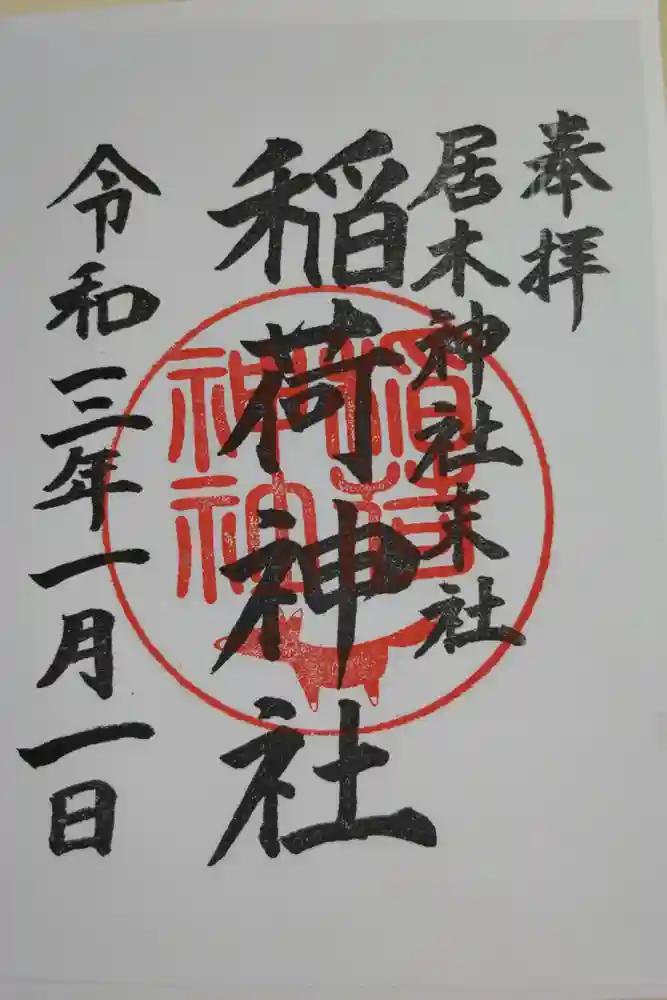 奉拝
居木神社末社
稲荷神社
令和三年一月一日